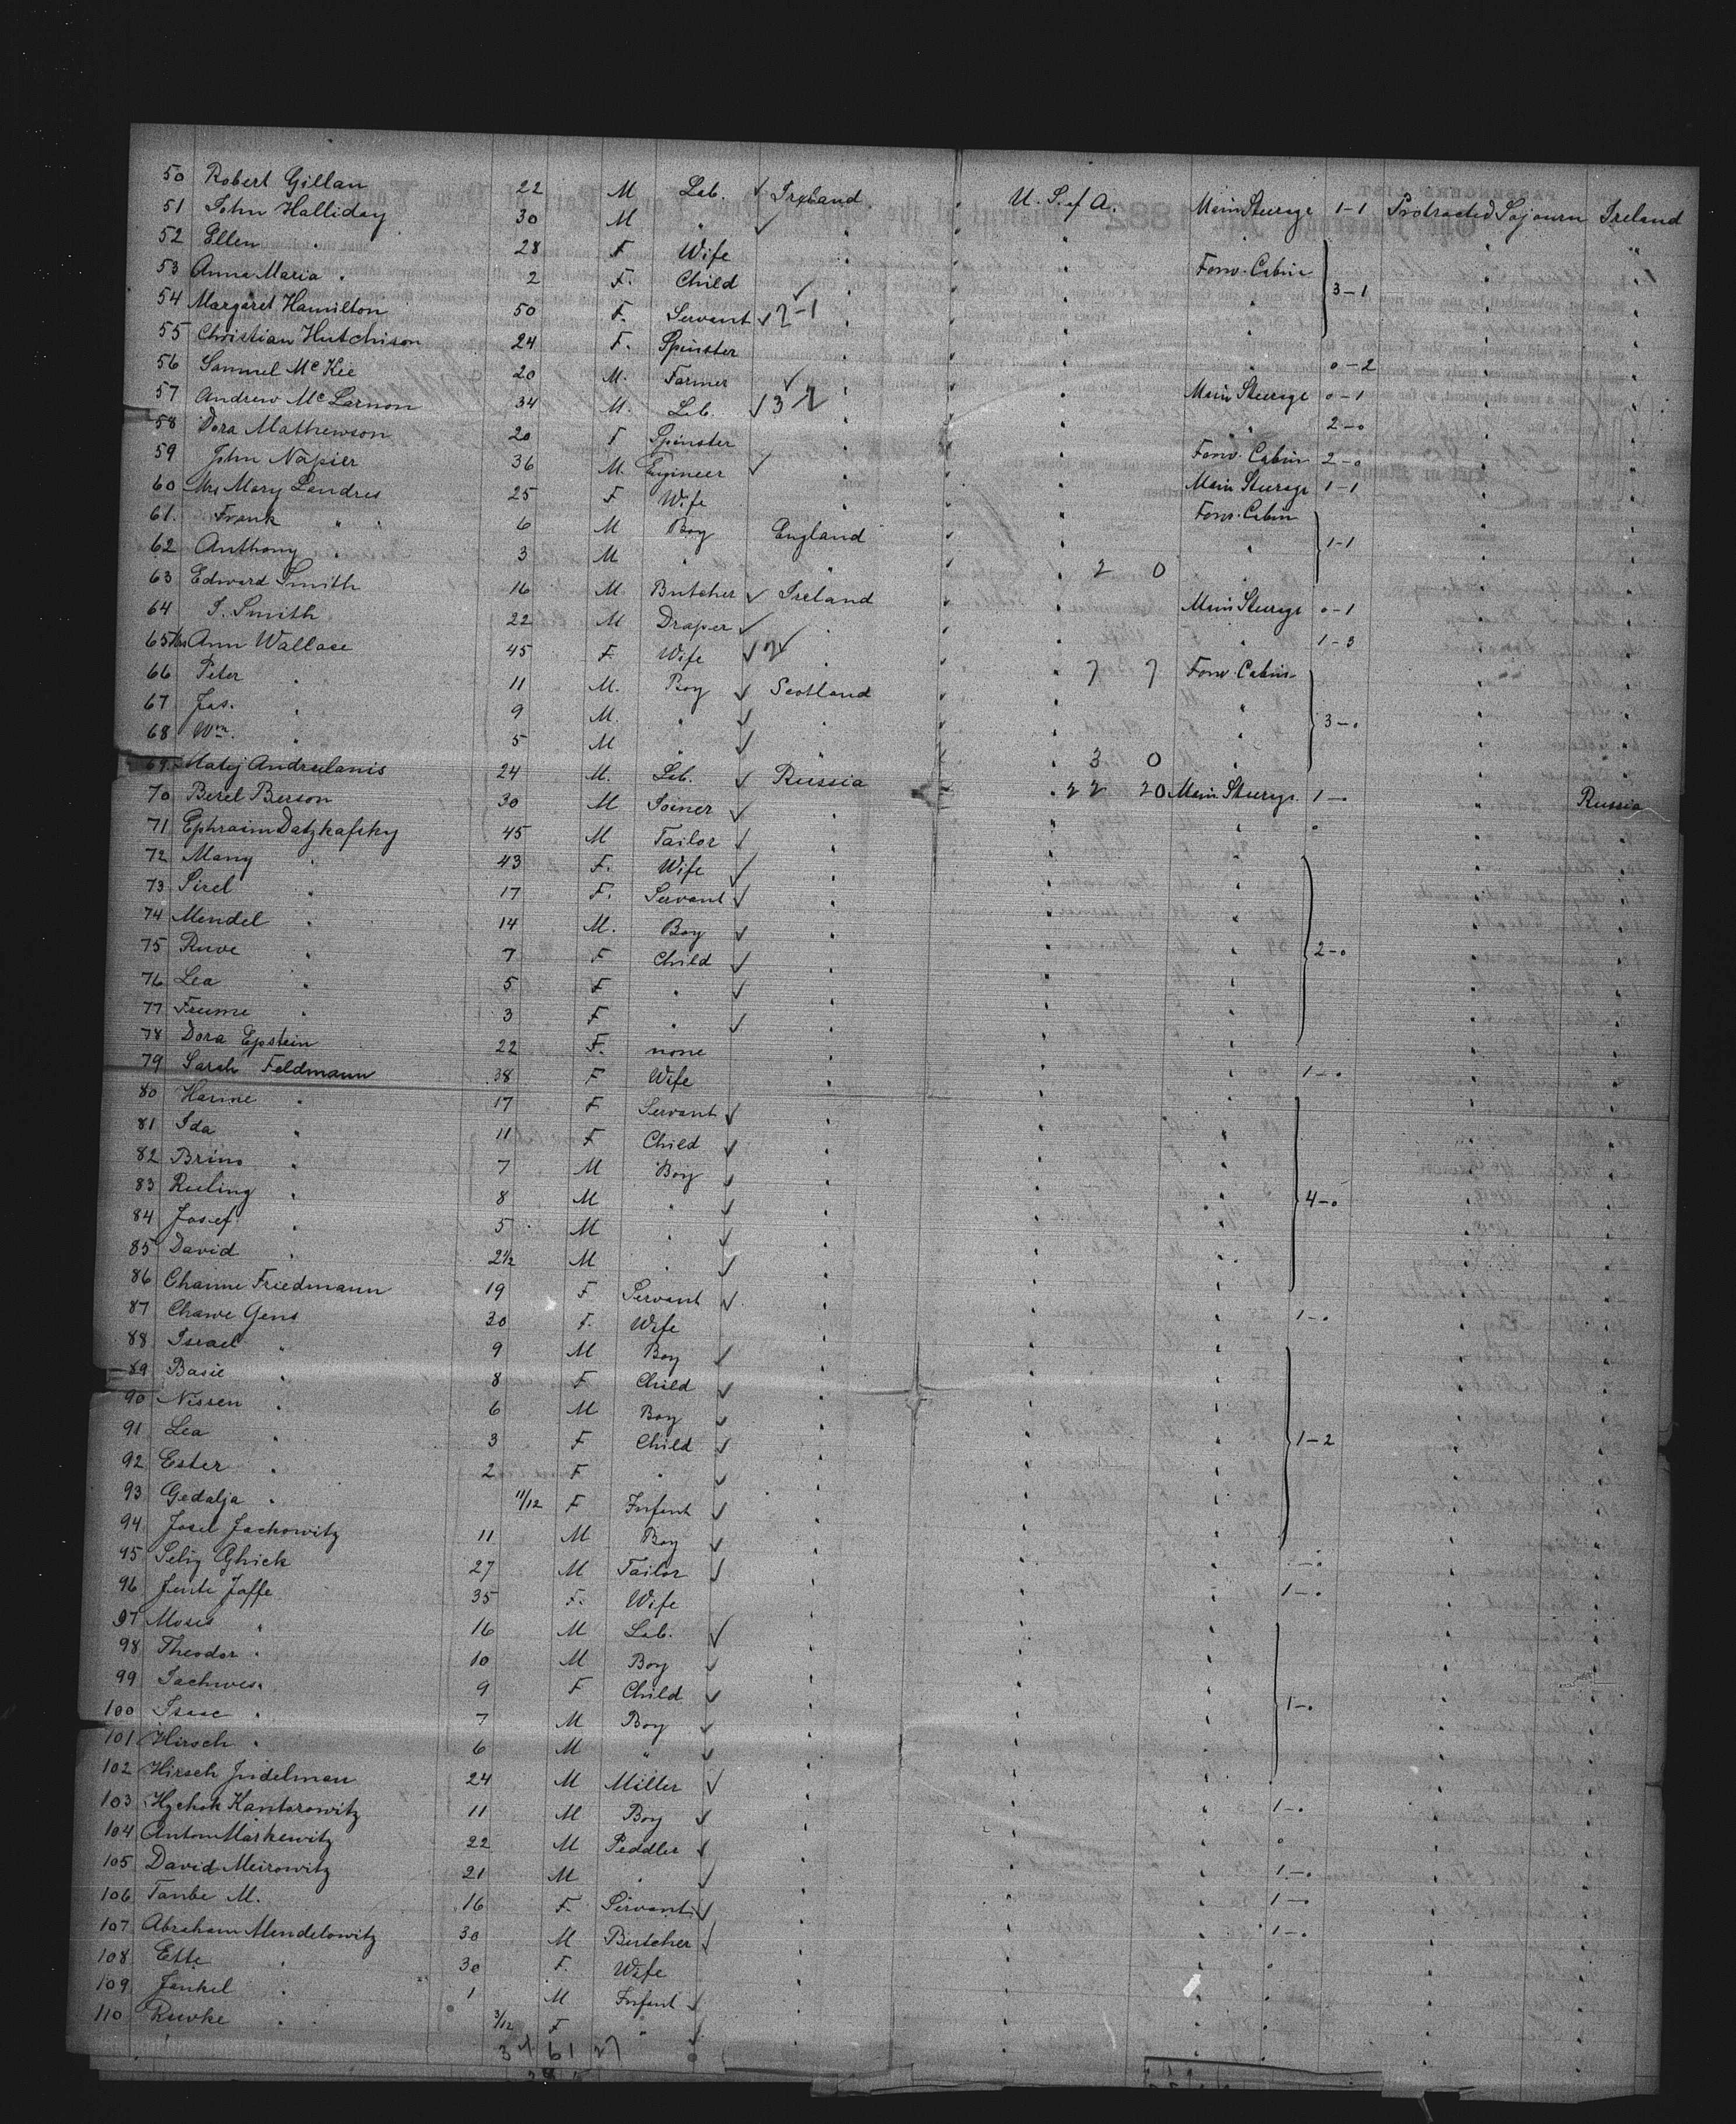 50 Robert Gillan 22 M Lab. Ireland U. S. of A. Main Steerage 1-1 Protracted Sojourn Ireland
51 John Halliday 30 M "
52 Ellen " 28 F Wife Forw. Cabin
53 Anna Maria " 2 F. Child 3-1
54 Margaret Hamilton 50 F. Servant 2-1
55 Christian Hutchison 24 F. Spinster
56 Samuel McKee 20 M. Farmer 0-2
57 Andrew McLarnon 34 M. Lab. Main Steerage 0-1
58 Dora Mathewson 20 F Spinster 2-0
59 John Napier 36 M. Engineer Forw. Cabin 2-0
60 Mrs Mary Landres 25 F Wife Main Steerage 1-1
61. Frank " 6 M Boy England Forw. Cabin
62 Anthony " 3 M " " 1-1
63 Edward Smith 16 M Butcher Ireland 2 0
64 J. Smith 22 M Draper Main Steerage 0-1
65 Mrs Ann Wallace 45 F. Wife 1-3
66 Peter " 11 M. Boy Scotland 7 7 Forw. Cabin
67 Jas. " 9 M. "
68 Wm. " 5 M " 3-0
69. Matej Andrulanis 24 M. Lab. Russia 3 0
70 Berel Berson 30 M Joiner 22 20 Main Steerage 1-0 Russia
71 Ephraim Datzkafsky 45 M Tailor
72 Many " 43 F. Wife
73 Sirel " 17 F. Servant
74 Mendel " 14 M. Boy
75 Ruve " 7 F Child 2-0
76 Lea " 5 F "
77 Frume " 3 F "
78 Dora Epstein 22 F. none
79 Sarah Feldmann 38 F Wife 1-0
80 Hanne " 17 F Servant
81 Ida " 11 F Child
82 Brino " 7 M Boy
83 Reeling " 8 M " 4-0
84 Josef " 5 M "
85 David " 2½ M "
86 Channe Friedmann 19 F Servant
87 Chawe Gens 30 F. Wife 1-0
88 Israel " 9 M Boy
89 Basie " 8 F Child
90 Nissen " 6 M Boy
91 Lea " 3 F Child 1-2
92 Ester " 2 F "
93 Gedalja " 11/12 F Infant
94 Josel Jachowitz 11 M Boy
95 Selig Glick 27 M Tailor
96 Jente Jaffe 35 F. Wife 1-0
97 Moses " 16 M Lab.
98 Theodor " 10 M Boy
99 Sachwe " 9 F Child
100 Isaac " 7 M Boy 1-0
101 Hirsch " 6 M "
102 Hirsch Judelman 24 M Miller
103 Kantorowitz 11 M Boy 1-0
104 Anton Markewitz 22 M Peddler
105 David Meirowitz 21 M " 1-0
106 Taube M. 16 F. Servant 1-0
107 Abraham Mendelowitz 30 M Butcher 1-0
108 Ette " 30 F. Wife
109 Jankel " 1 M Infant
110 Ruvke " 3/12 F "
61 27